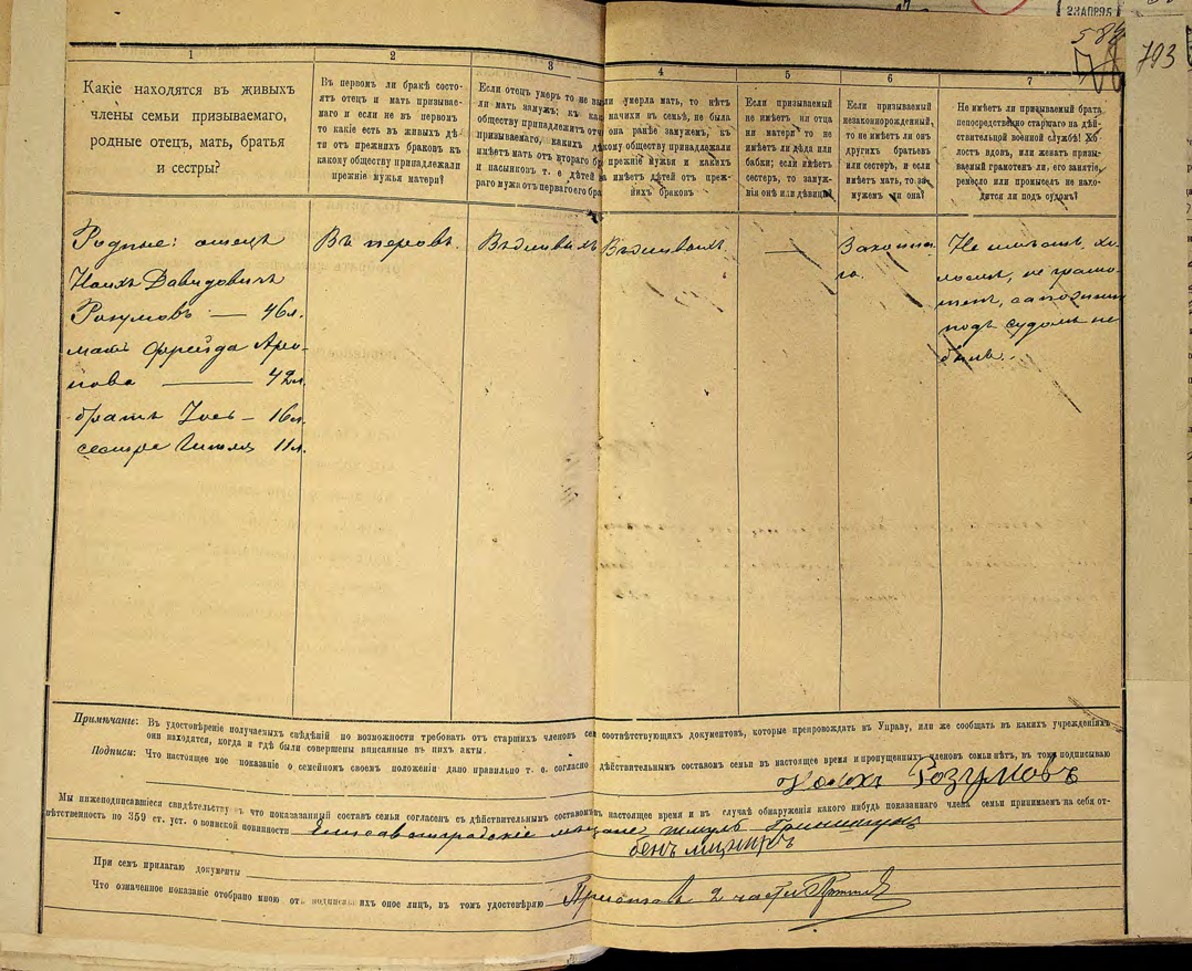 23 АПР 95
588
793
1
2
3
4
5
6
7
Какіе находятся въ живыхъ
члены семьи призываемаго,
родные отецъ, мать, братья
и сестры?
Въ первомъ ли бракѣ состо-
ятъ отецъ и мать призывае-
маго и если не въ первомъ
то какіе есть въ живыхъ дѣ-
ти отъ прежнихъ браковъ къ
какому обществу принадлежали
прежніе мужья матери?
Если отецъ умеръ то не вы
ли мать замужъ; къ как
обществу принадлежитъ отч
призываемаго, какихъ дѣ
имѣетъ мать отъ второго бр
и пасынковъ т. е. дѣтей
раго мужа отъ перваго его бра
ли умерла мать, то нѣтъ
мачихи въ семьѣ, не была
она ранѣе замужемъ, къ
кому обществу принадлежали
прежніе мужья и какихъ
имѣетъ дѣтей отъ преж-
нихъ браковъ
Если призываемый
не имѣетъ ни отца
ни матери то не
имѣетъ ли дѣда или
бабки; если имѣетъ
сестеръ, то замуж-
нія онѣ или дѣвицы?
Если призываемый
незаконнорожденный,
то не имѣетъ ли онъ
другихъ братьевъ
или сестеръ, и если
имѣетъ мать, то за-
мужемъ ли она?
Не имѣетъ ли призываемый брата
непосредственно старшаго на дѣй-
ствительной военной службѣ? Хо-
лостъ вдовъ, или женатъ призы-
ваемый грамотенъ ли, его занятіе,
ремесло или промыселъ не нахо-
дится ли подъ судомъ?
Родные: отецъ
Давидовичъ
Розумовъ — 46 л.
мать Фрейда Аро-
нова — 42 л.
братъ Іосъ — 16 л.
сестра 11 л.
Въ первъ.
Въ живыхъ
Въ живыхъ.
—
Законна
го.
Не имѣетъ, хо-
лостъ, не грамо-
тенъ, сапожникъ
подъ судомъ не
былъ.
Примѣчаніе: Въ удостовѣреніе получаемыхъ свѣдѣній по возможности требовать отъ старшихъ членовъ сем соотвѣтствующихъ документовъ, которые препровождать въ Управу, или же сообщать въ какихъ учрежденіяхъ
они находятся, когда и гдѣ были совершены вписанные въ нихъ акты.
Подписи: Что настоящее мое показаніе о семейномъ своемъ положеніи дано правильно т. е. согласно дѣйствительнымъ составомъ семьи въ настоящее время и пропущенныхъ членовъ семьи нѣтъ, въ томъ подписываю
Розумовъ
Мы нижеподписавшіеся свидѣтельству что показаванный составъ семьи согласенъ съ дѣйствительнымъ составомъ въ настоящее время и въ случаѣ обнаруженія какого нибудь показаннаго члена семьи принимаемъ на себя от-
вѣтственность по 359 ст. уст. о воинской повинности Елисаветградскіе мещане Шмуль Гриншпунъ
При семъ прилагаю документы
Что означенное показаніе отобрано мною отъ подписавшихъ оное лицъ, въ томъ удостовѣряю Приставъ 2 части